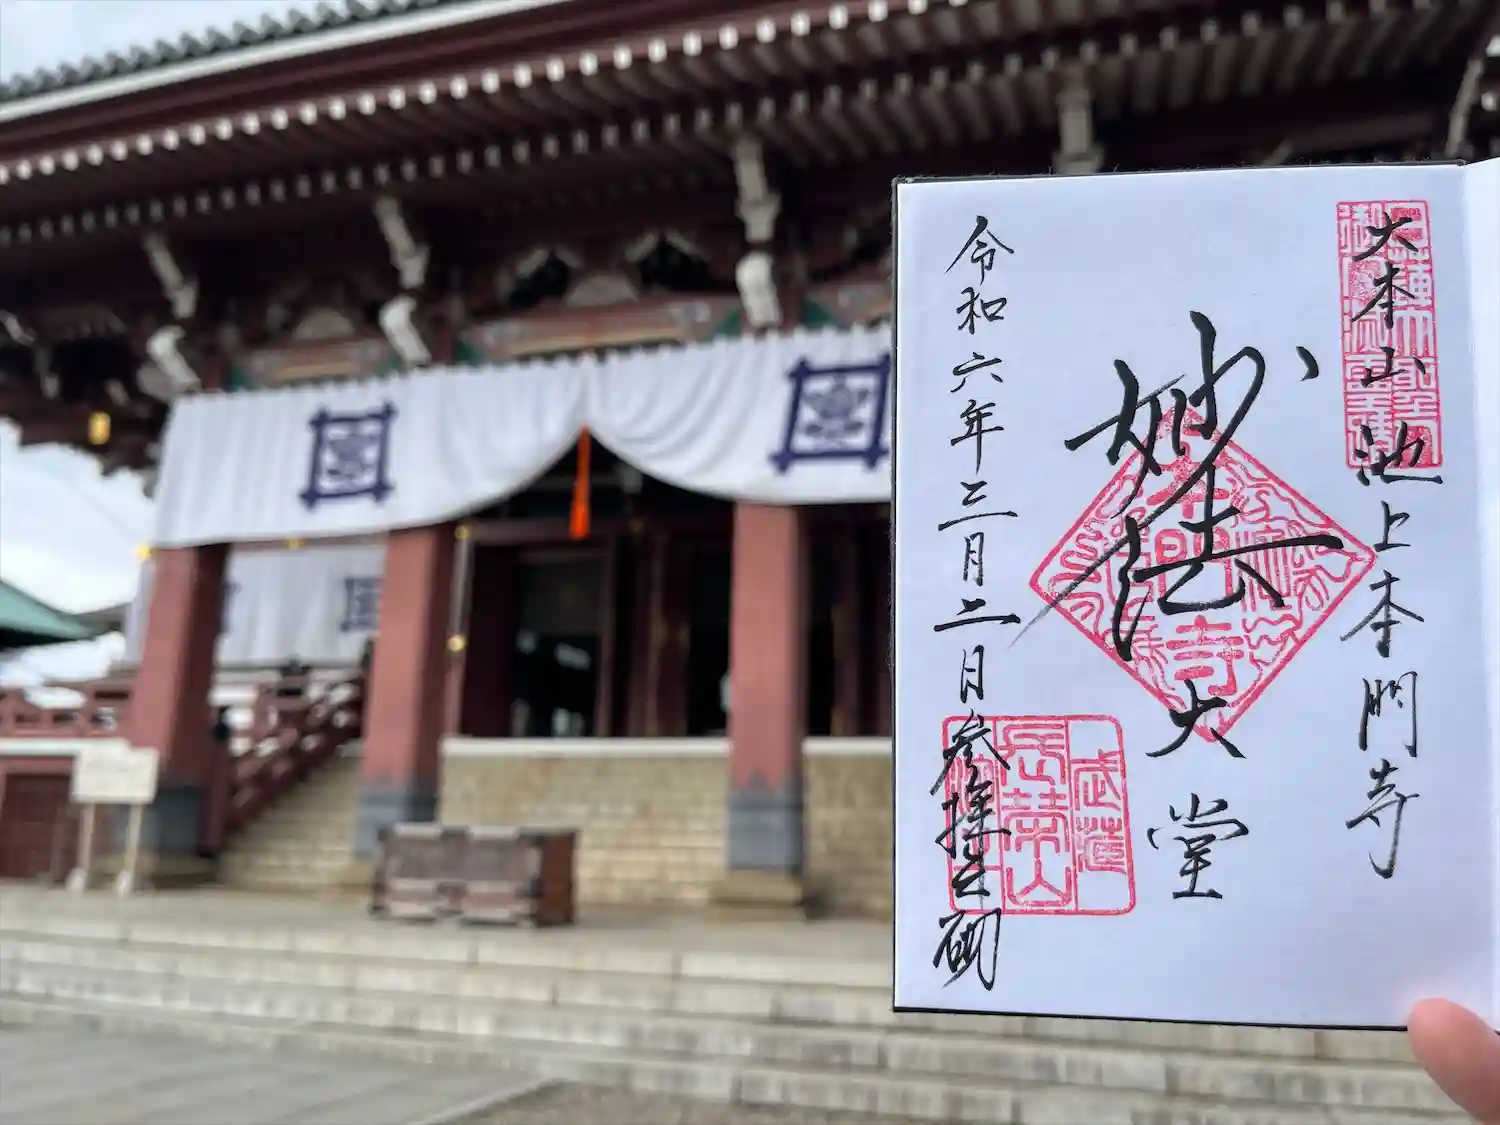 大本山 池上本門寺
日蓮大聖人
御霊蹟
妙法
大堂
本門寺
令和六年三月二日 参拝之砌
武蔵
長栄山